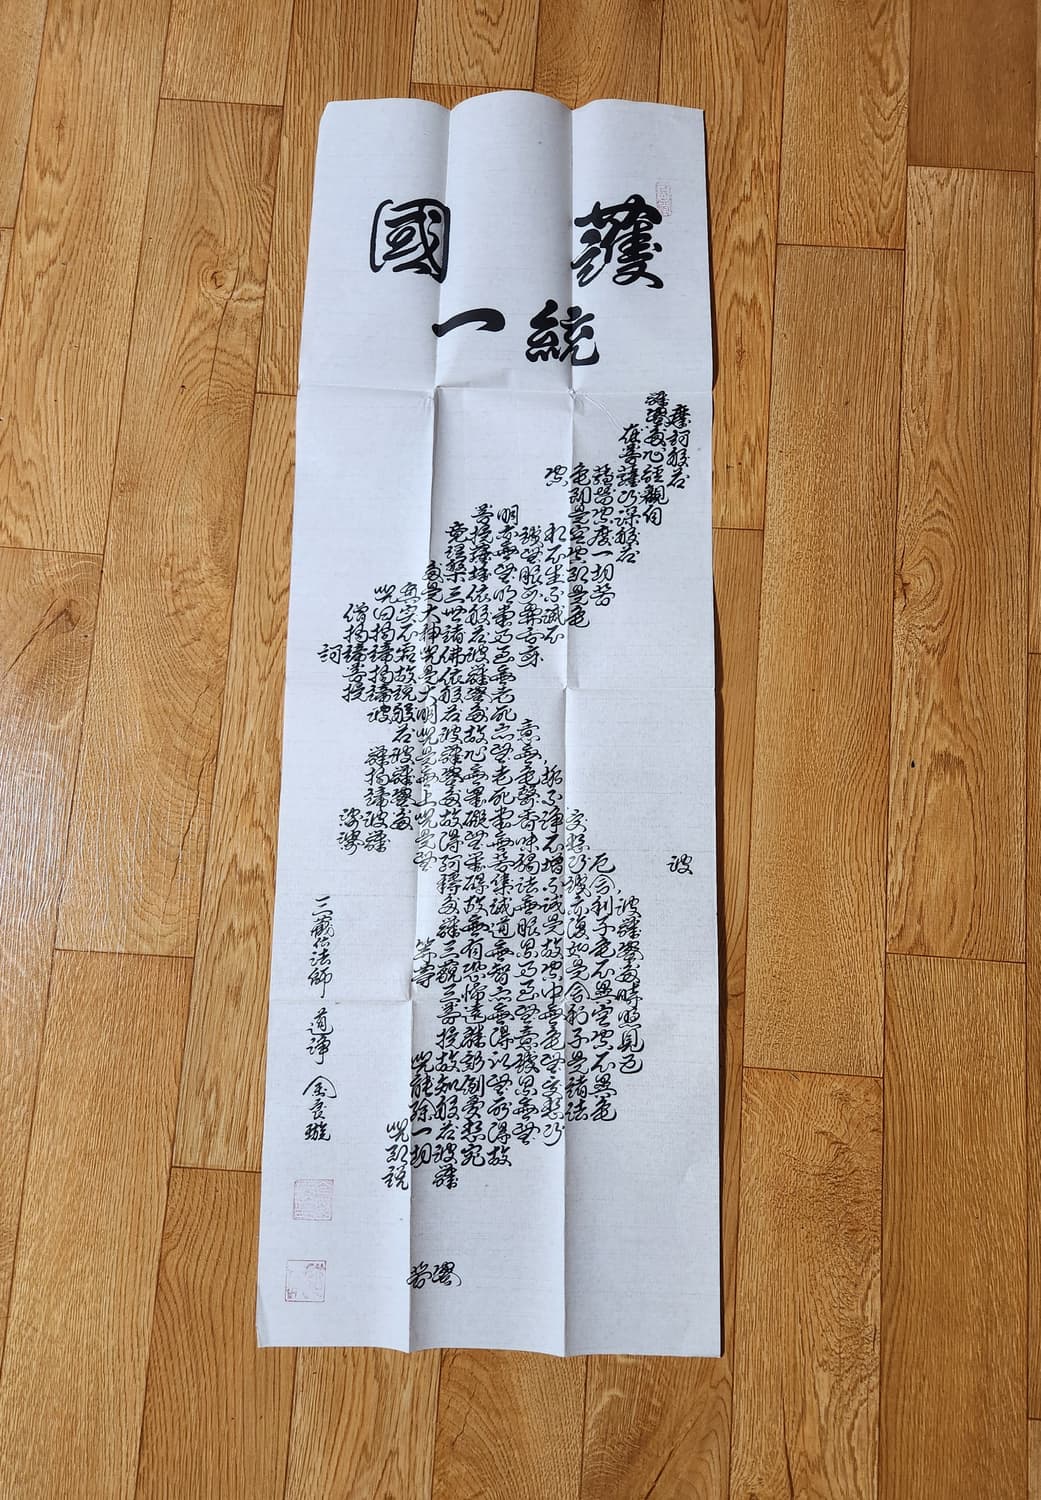 護國
統一
摩訶般若
波
羅蜜多心經觀自
在菩薩行深般若
波羅蜜多時照見五
蘊皆空度一切苦
厄舍利子色不異空空不異色
色卽是空空卽是色
受想行識亦復如是舍利子是諸法
空
相不生不滅不
垢不淨不增不減是故空中無色無受想行
識無眼耳鼻舌身
意無色聲香味觸法無眼界乃至無意識界無無
明亦無無明盡乃至無老死亦無老死盡無苦集滅道無智亦無得以無所得故
菩提薩埵依般若波羅蜜多故心無罣碍無罣碍故無有恐怖遠離顚倒夢想究
竟涅槃三世諸佛依般若波羅蜜多故得阿耨多羅三藐三菩提故知般若波羅
蜜
多是大神呪是大明呪是無上呪是無
等等
呪能除一切
苦
眞實不虛故說般若波羅蜜多
呪卽說
呪曰揭諦揭諦波
羅揭諦波羅
僧揭諦菩提
娑婆
訶
三藏法師 道 金良璇